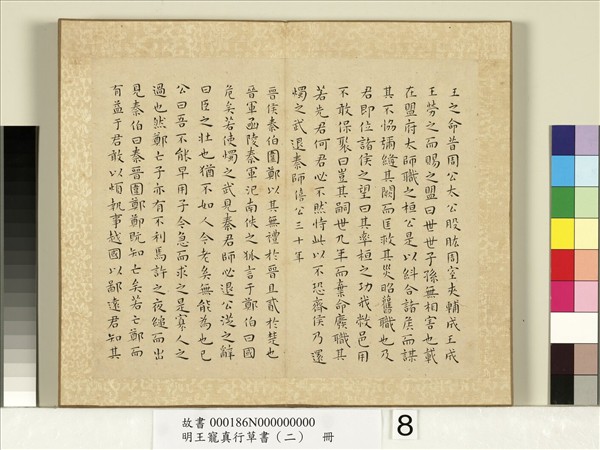 王之命昔周公大公股肱周室夾輔成王成
王勞之而賜之盟曰世世子孫無相害也載
在盟府太師職之桓公是以糾合諸侯而謀
其不協彌縫其闕而匡救其災昭舊職也及
君即位諸侯之望曰其率桓之功我敝邑用
不敢保聚曰豈其嗣世九年而棄命廢職其
若先君何君必不然恃此以不恐齊侯乃還
燭之武退秦師僖公三十年
晉侯秦伯圍鄭以其無禮於晉且貳於楚也
晉軍函陵秦軍氾南佚之狐言于鄭伯曰國
危矣若使燭之武見秦君師必退公從之辭
曰臣之壯也猶不如人今老矣無能為也已
公曰吾不能早用子今急而求之是寡人之
過也然鄭亡子亦有不利焉許之夜縋而出
見秦伯曰秦晉圍鄭鄭既知亡矣若亡鄭而
有益于君敢以煩執事越國以鄙遠君知其
故書 000186N000000000
明王寵真行草書（二） 冊
8